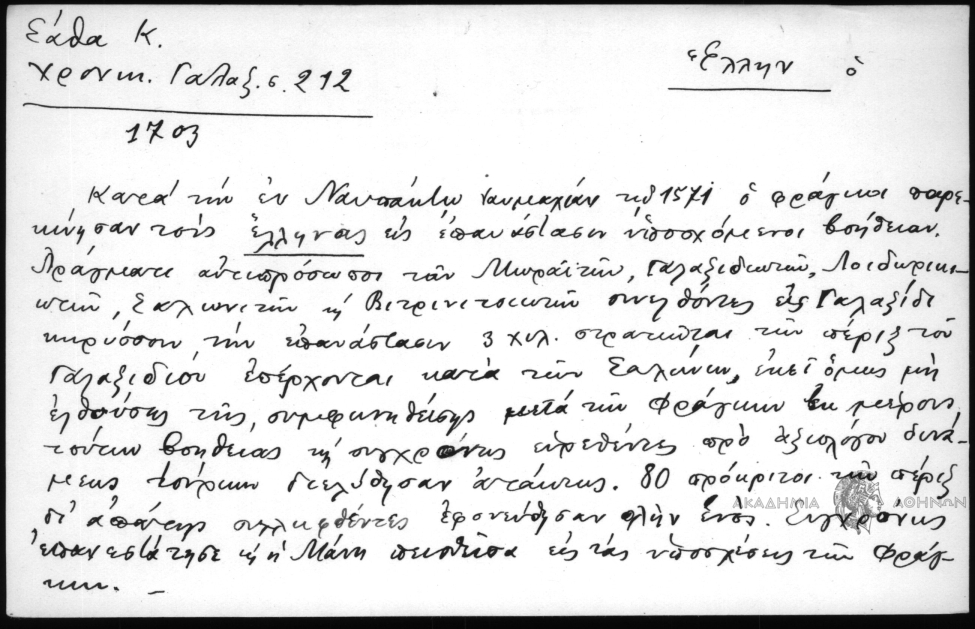 Σάθα Κ.
Χρονικ. Γαλαξ. σ. 212
Ἕλλην ὁ
1703
Κατά τήν ἐν Ναυπάκτω ναυμαχίαν τοῦ 1571 ὁ φράγκοι παρε-
κίνησαν τούς ἕλληνας εἰς ἐπανάστασιν ὑποσχόμενοι βοήθειαν.
Πράγματι ἀντιπρόσωποι τῶν Μωραϊτῶν, Γαλαξιδιωτῶν, Λοιδωρικι-
ωτῶν, Σαλωνιτῶν κ̣ Βιτρινιτσιωτῶν συνελθόντες εἰς Γαλαξίδι
κηρύσσουν τήν ἐπανάστασιν 3 χιλ. στρατιῶται τῶν πέριξ τοῦ
Γαλαξιδίου ἐπέρχονται κατά τῶν Σαλώνων, ἐκεῖ ὅμως μή
ἐλθούσης τῆς συμφωνηθείσης μετά τῶν Φράγκων ἐκ μέρους
τούτων βοηθείας κ̣ συγχρόνως εὑρεθέντες πρό ἀξιολόγου δυνά-
μεως τούρκων διελύθησαν ἀτάκτως. 80 πρόκριτοι τῶν πέριξ
δι' ἀπάτης συλληφθέντες ἐφονεύθησαν πλήν ἑνός. Συγχρόνως
ἐπανεστάτησε κ̣ ἡ Μάνη πεισθεῖσα εἰς τάς ὑποσχέσεις τῶν Φράγ-
κων. –
ΑΚΑΔΗΜΙΑ ΑΘΗΝΩΝ